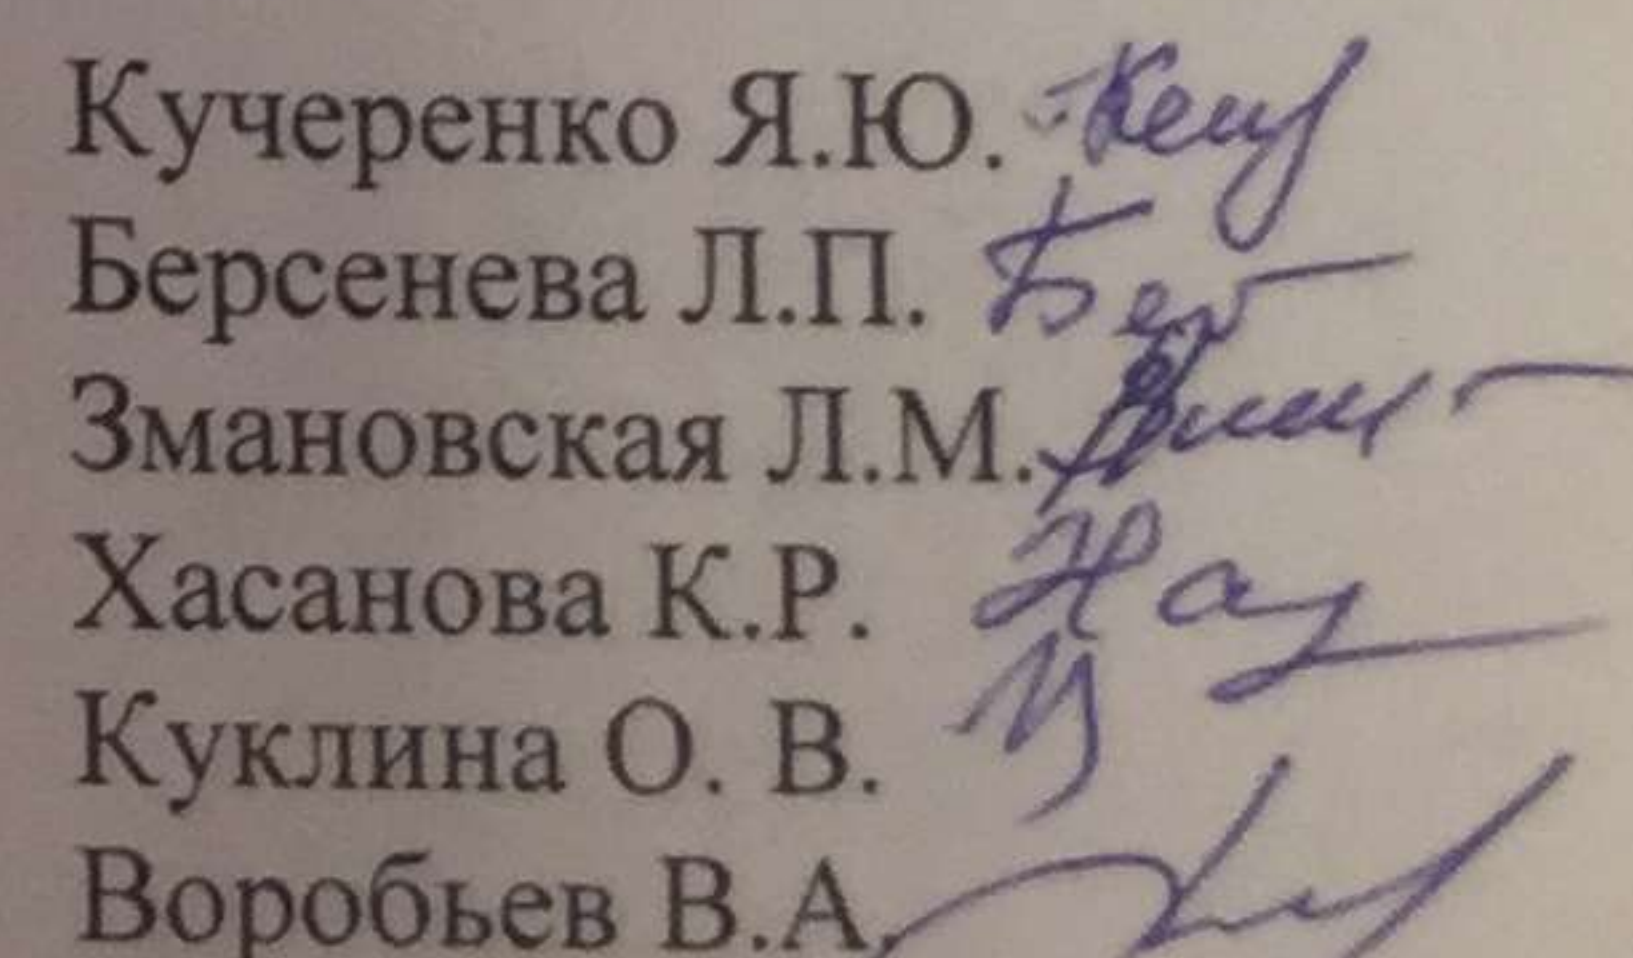 Кучеренко Я.Ю.
Берсенева Л.П. Бер
Змановская Л.М.
Хасанова К.Р.
Куклина О. В.
Воробьев В.А.